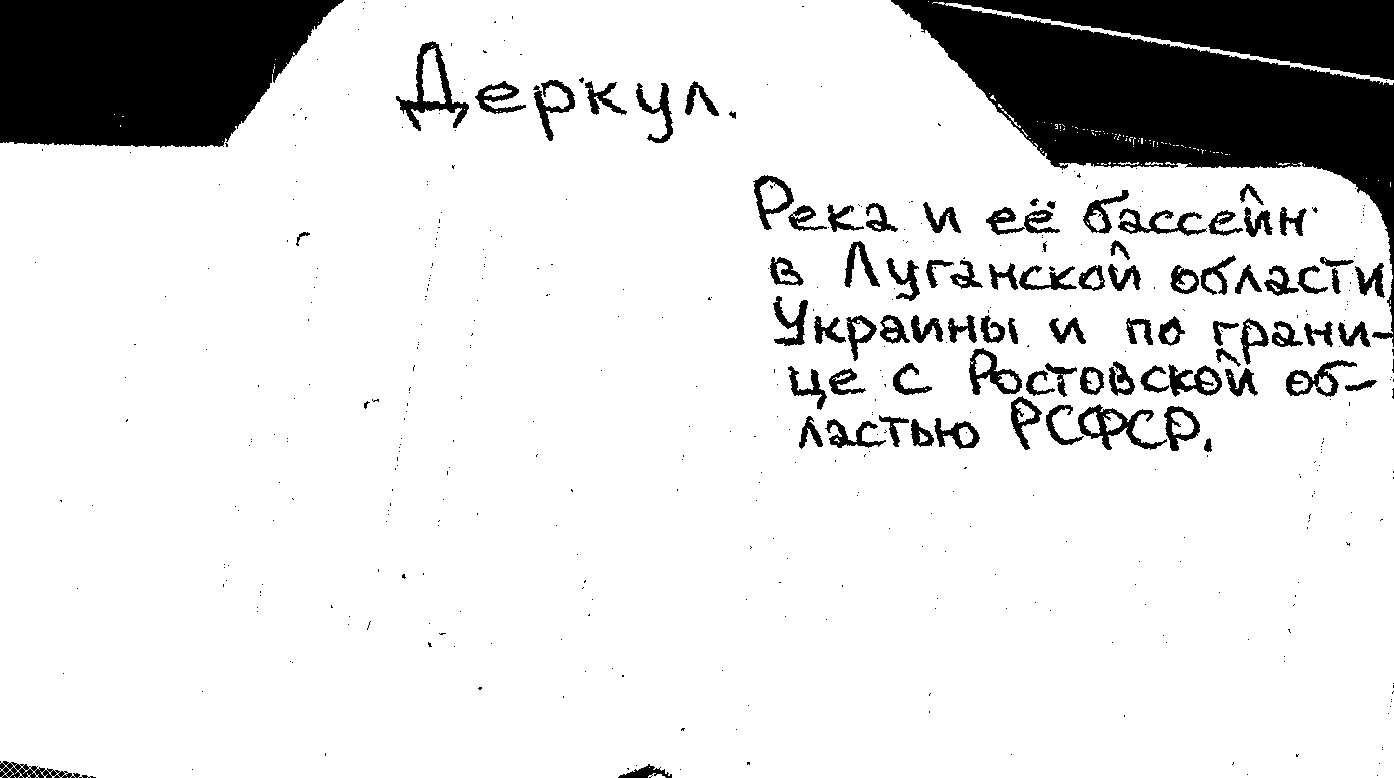 Деркул.
Река и её бассейн
в Луганской области
Украины и по грани-
це с Ростовской об-
ластью РСФСР.